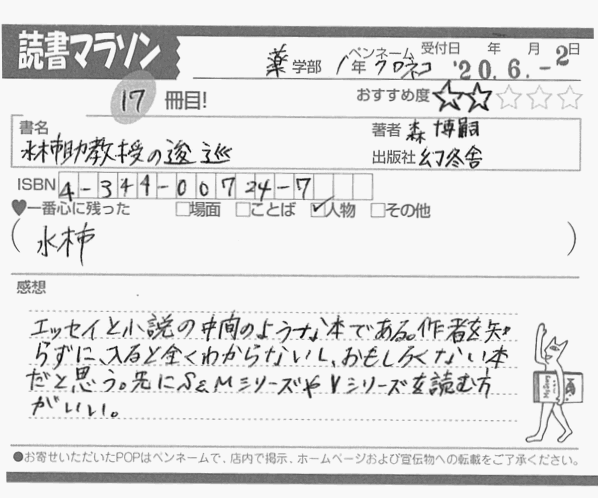 読書マラソン
薬学部 1年 ペンネーム クロネコ 受付日 年 月 日 '20.6.-2
17冊目! おすすめ度 ☆☆☆☆☆
書名 水柿助教授の逡巡
著者 森 博嗣
出版社 幻冬舎
ISBN 4-344-00724-7
♥一番心に残った □場面 □ことば ☑人物 □その他
(水柿)
感想
エッセイと小説の中間のような本である。作者を知
らずに、入ると全くわからないし、おもしろくない本
だと思う。先にS&MシリーズやVシリーズを読む方
がいい。
●お寄せいただいたPOPはペンネームで、店内で掲示、ホームページおよび宣伝物への転載をご了承ください。